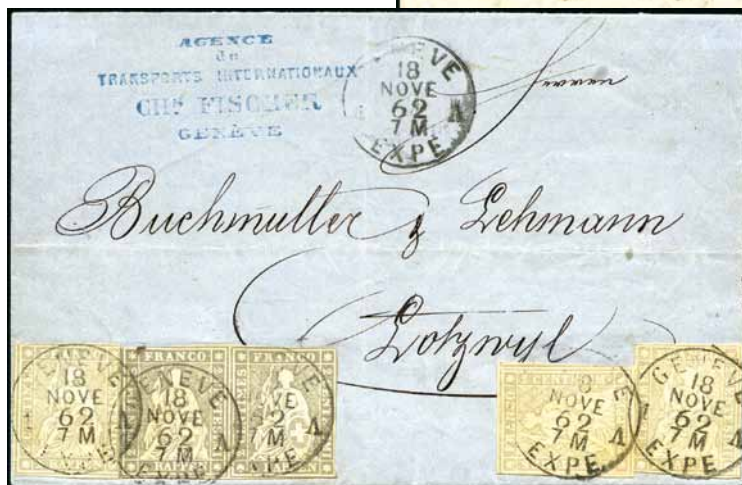 AGENCE
de
TRANSPORTS INTERNATIONAUX
CHs. FISCHER
GENÈVE
GENEVE
18
NOVE
62
7 M
EXPE
A
Herren
Buchmuller & Lehmann
Lotzwyl
GENEVE
18
NOVE
62
7 M
EXPE
A
FRANCO
GENEVE
18
NOVE
62
7 M
A
FRANCO
A
GENEVE
18
NOVE
62
7 M
EXPE
A